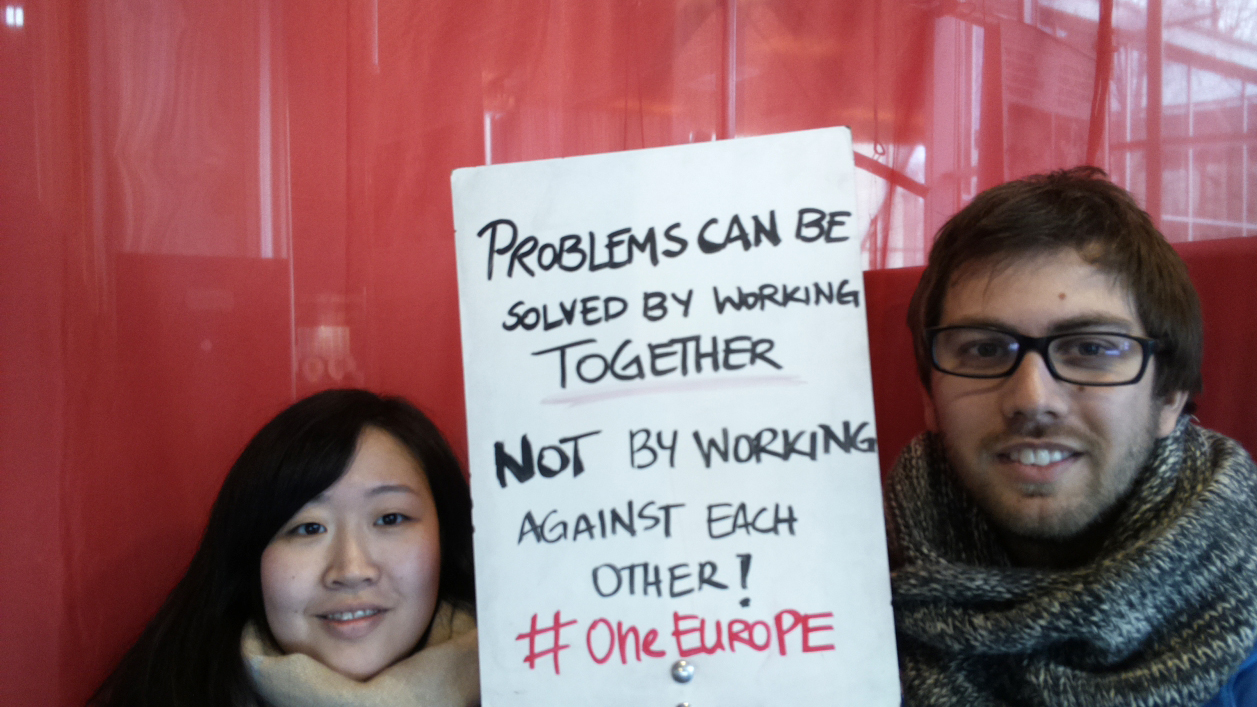 PROBLEMS CAN BE
SOLVED BY WORKING
TOGETHER
NOT BY WORKING
AGAINST EACH
OTHER!
#OneEUROPE